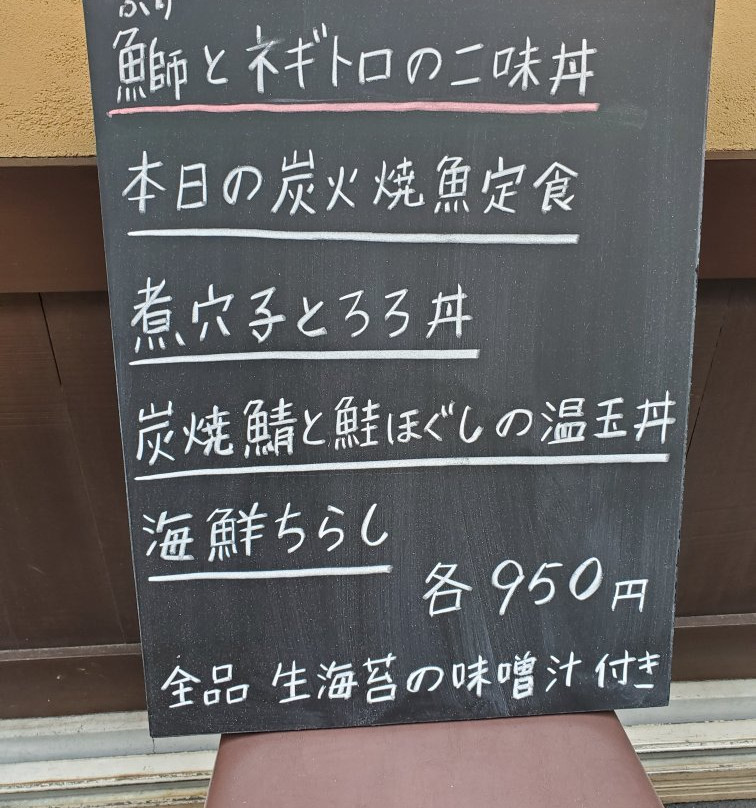 ぶり
鰤とネギトロの二味丼
本日の炭火焼魚定食
煮穴子とろろ丼
炭焼鯖と鮭ほぐしの温玉丼
海鮮ちらし
各950円
全品 生海苔の味噌汁付き